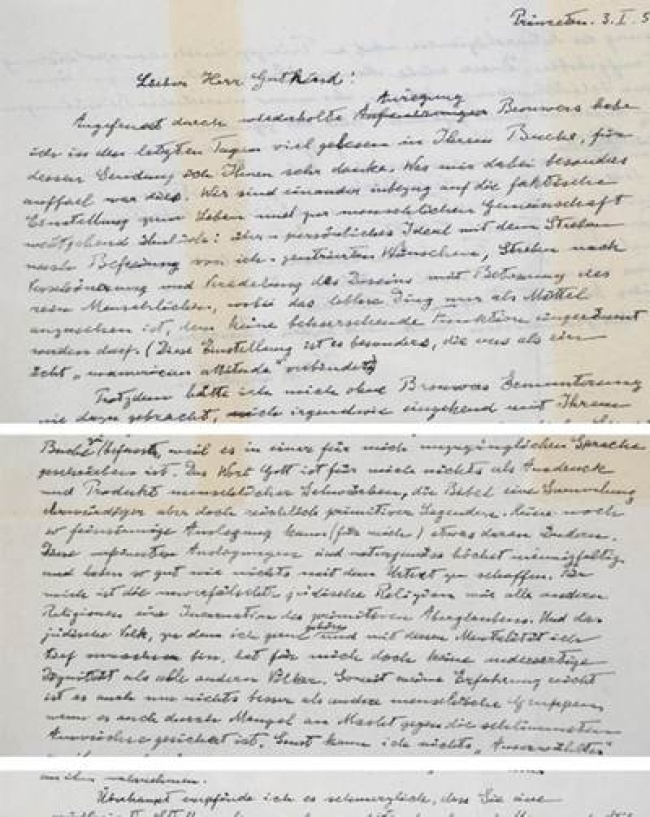 Princeton. 3. I. 5
Lieber Herr Gutkind!
Anregung
Angefeuert durch wiederholte Brouwers habe
ich in den letzten Tagen viel gelesen in Ihrem Buche, für
dessen Sendung ich Ihnen sehr danke. Was mir dabei besonders
auffiel war dies. Wir sind einander inbezug auf die faktische
Einstellung zum Leben und zur menschlichen Gemeinschaft
weitgehend ähnlich: persönliches Ideal mit dem Streben
nach Befreiung von ich-zentrierten Wünschen, Streben nach
Verschönerung und Veredelung des Daseins mit Betonung des
rein Menschlichen, wobei das leblose Ding nur als Mittel
anzusehen ist, dem keine beherrschende Funktion eingeräumt
werden darf. (Diese Einstellung ist es besonders, die uns als ein
ächt „unamerican attitude" verbindet)
Trotzdem hätte ich mich ohne Brouwers Ermunterung
nie dazu gebracht, mich irgendwie eingehend mit Ihrem
Buche zu befassen, weil es in einer für mich unzugänglichen Sprache
geschrieben ist. Das Wort Gott ist für mich nichts als Ausdruck
und Produkt menschlicher Schwächen, die Bibel eine Sammlung
ehrwürdiger aber doch reichlich primitiver Legenden. Keine noch
so feinsinnige Auslegung kann (für mich) etwas daran ändern.
Diese verfeinerten Auslegungen sind naturgemäss höchst mannigfaltig
und haben so gut wie nichts mit dem Urtext zu schaffen. Für
mich ist die unverfälschte jüdische Religion wie alle anderen
Religionen eine Incarnation des primitiven Aberglaubens. Und das
gehöre
jüdische Volk, zu dem ich gern und mit dessen Mentalität ich
tief verwachsen bin, hat für mich doch keine andersartige
Dignität als alle anderen Völker. Soweit meine Erfahrung reicht
ist es auch um nichts besser als andere menschliche Gruppen
wenn es auch durch Mangel an Macht gegen die schlimmsten
Auswüchse gesichert ist. Sonst kann ich nichts „Auserwähltes"
an ihm wahrnehmen.
Überhaupt empfinde ich es schmerzlich, dass Sie eine